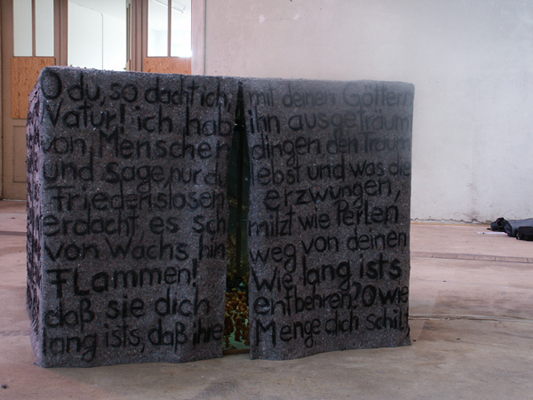 O du, so dacht ich, mit deinen Göttern
Natur! ich hab ihn ausgeträum
von Menschen dingen den Traum
und sage, nur du lebst und was die
Friedenslosen erzwungen,
erdacht, es sch milzt wie Perlen
von Wachs hin weg von deinen
Flammen! Wie lang ists
daß sie dich entbehren? O wie
lang ists, daß ihre Menge dich schilt,